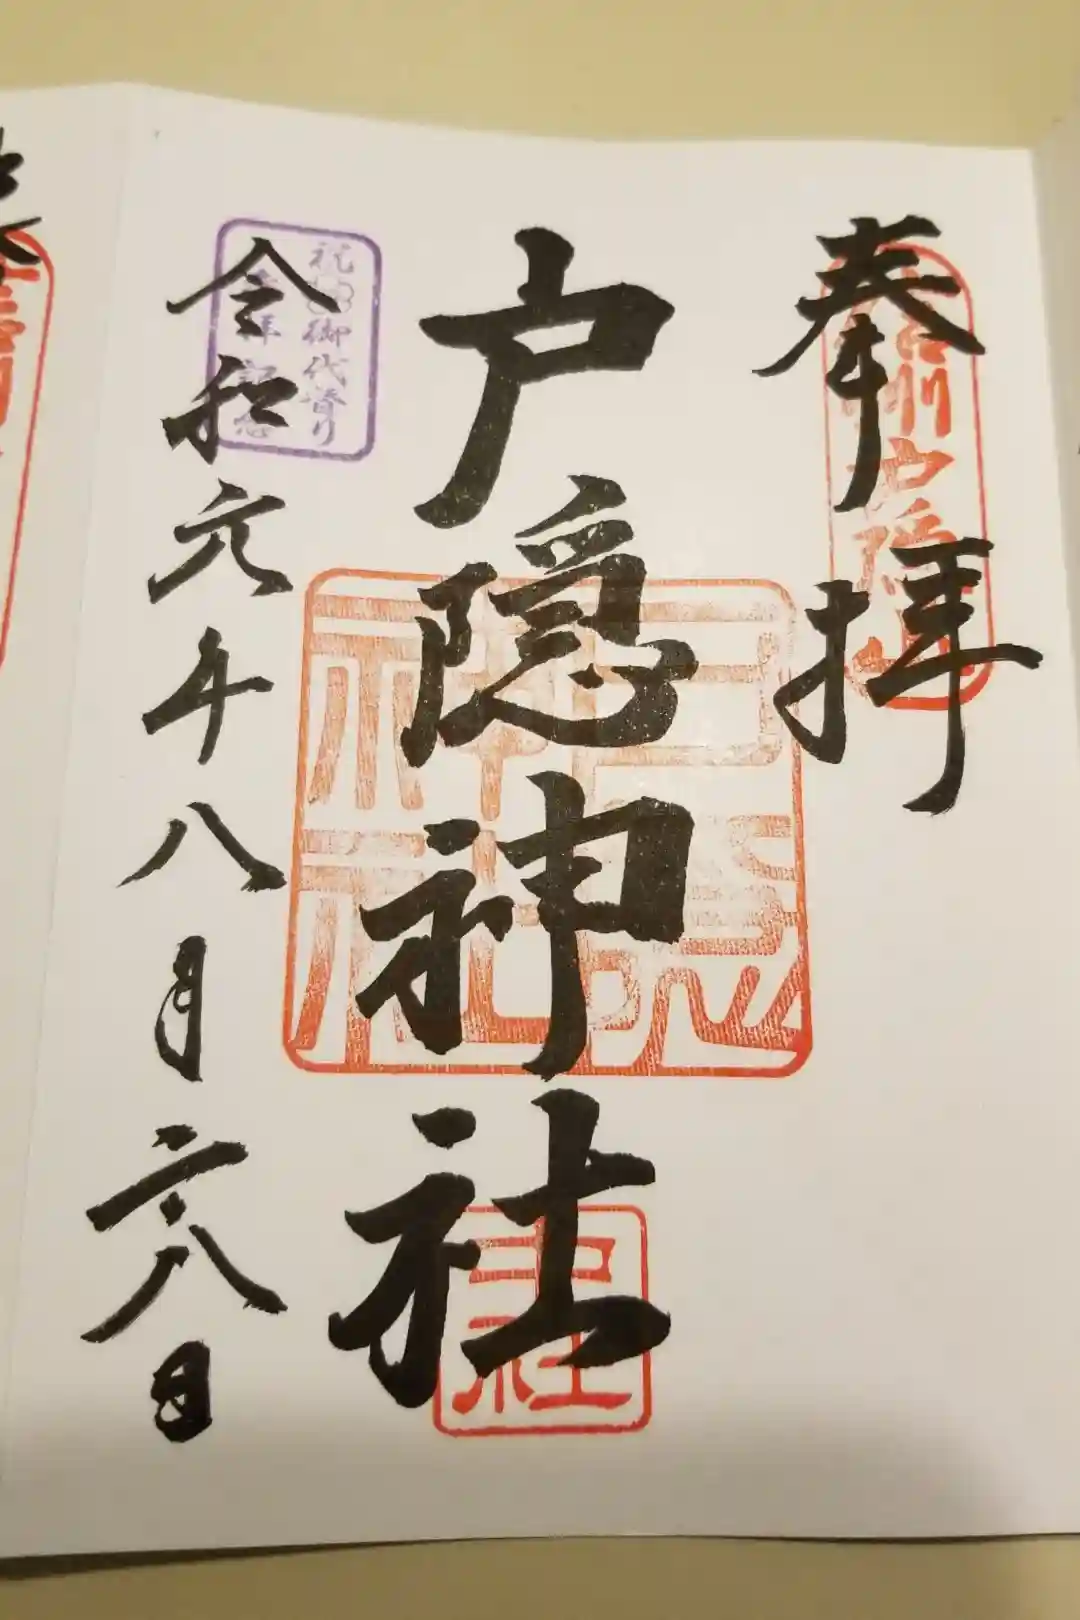 奉拝
信州戸隠山
戸隠神社
戸隠
神社
中社
祝 御代替り
参拝記念
令和元年八月二十八日